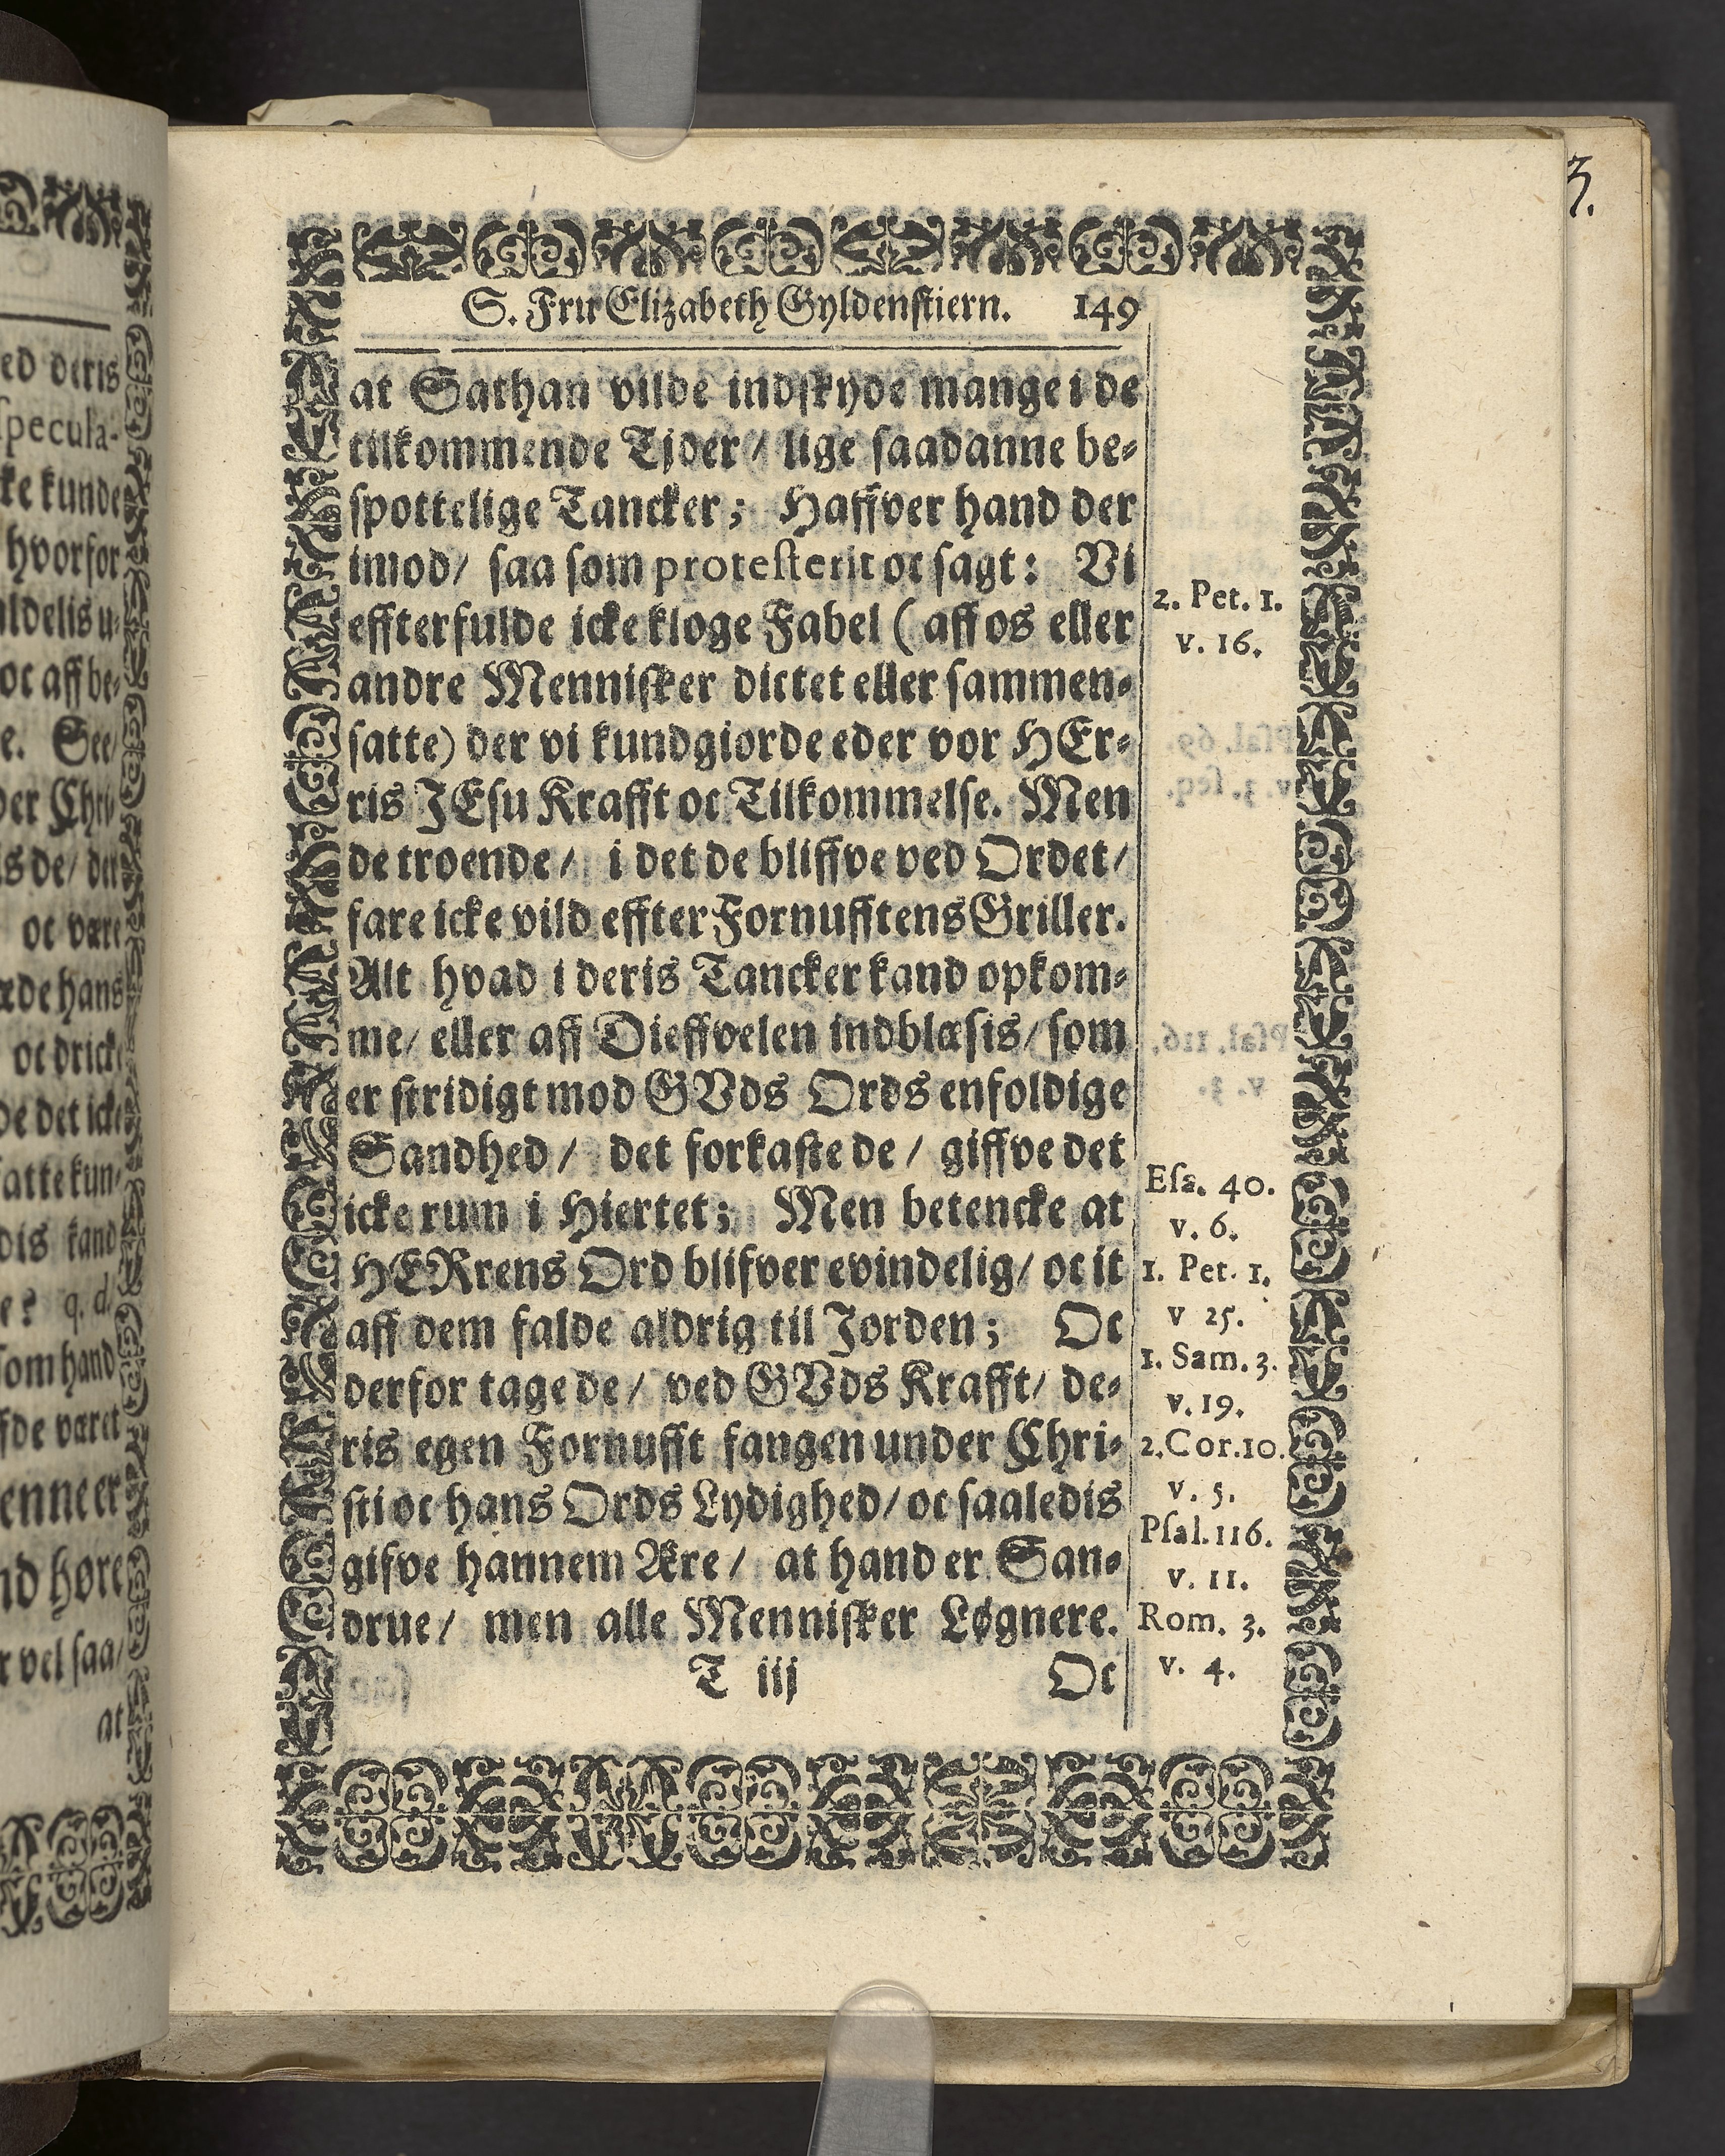 S. Frw Elizabeth Gyldenstiern. 149
at Sathan vilde indskyde mange i de
tilkommende Tjder / lige saadanne be-
spottelige Tancker; Haffver hand der
imod / saa som protesterit oc sagt: Vi
effterfulde icke kloge Fabel ( aff os eller
andre Mennisker dictet eller sammen-
satte) der vi kundgiorde eder vor HEr-
ris JEsu Krafft oc Tilkommelse. Men
de troende / i det de bliffve ved Ordet /
fare icke vild effter Fornufftens Griller.
Alt hvad i deris Tancker kand opkom-
me / eller aff Dieffvelen indblæsis / som
er stridigt mod GVds Ords enfoldige
Sandhed / det forkaste de / giffve det
icke rum i Hiertet; Men betencke at
HERrens Ord blifver evindelig / oc it
aff dem falde aldrig til Jorden; Oc
derfor tage de / ved GVds Krafft / de-
ris egen Fornufft fangen under Chri-
sti oc hans Ords Lydighed / oc saaledis
gifve hannem Ære / at hand er San-
drue / men alle Mennisker Løgnere.
T iij Oc
2. Pet. 1.
v. 16.
Esa. 40.
v. 6.
1. Pet. 1.
v 25.
1. Sam. 3.
v. 19.
2. Cor. 10.
v. 5.
Psal. 116.
v. 11.
Rom. 3.
v. 4.
ed deris
specula-
ke kunde
hvorfor
ldelis u-
oc aff be-
e. See /
der Chri-
is de / der
oc være
de hans
oc dricke
de det icke
fatte kun-
dis kand
e? q. d.
som hand
fde været
enne er
nd høre
r vel saa /
at
3.